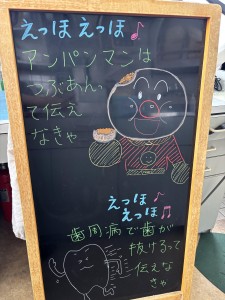 えっほ えっほ♪
アンパンマンは
つぶあんっ
て伝え
なきゃ
えっほ
えっほ♬
歯周病で歯が
抜けるって
伝えな
きゃ